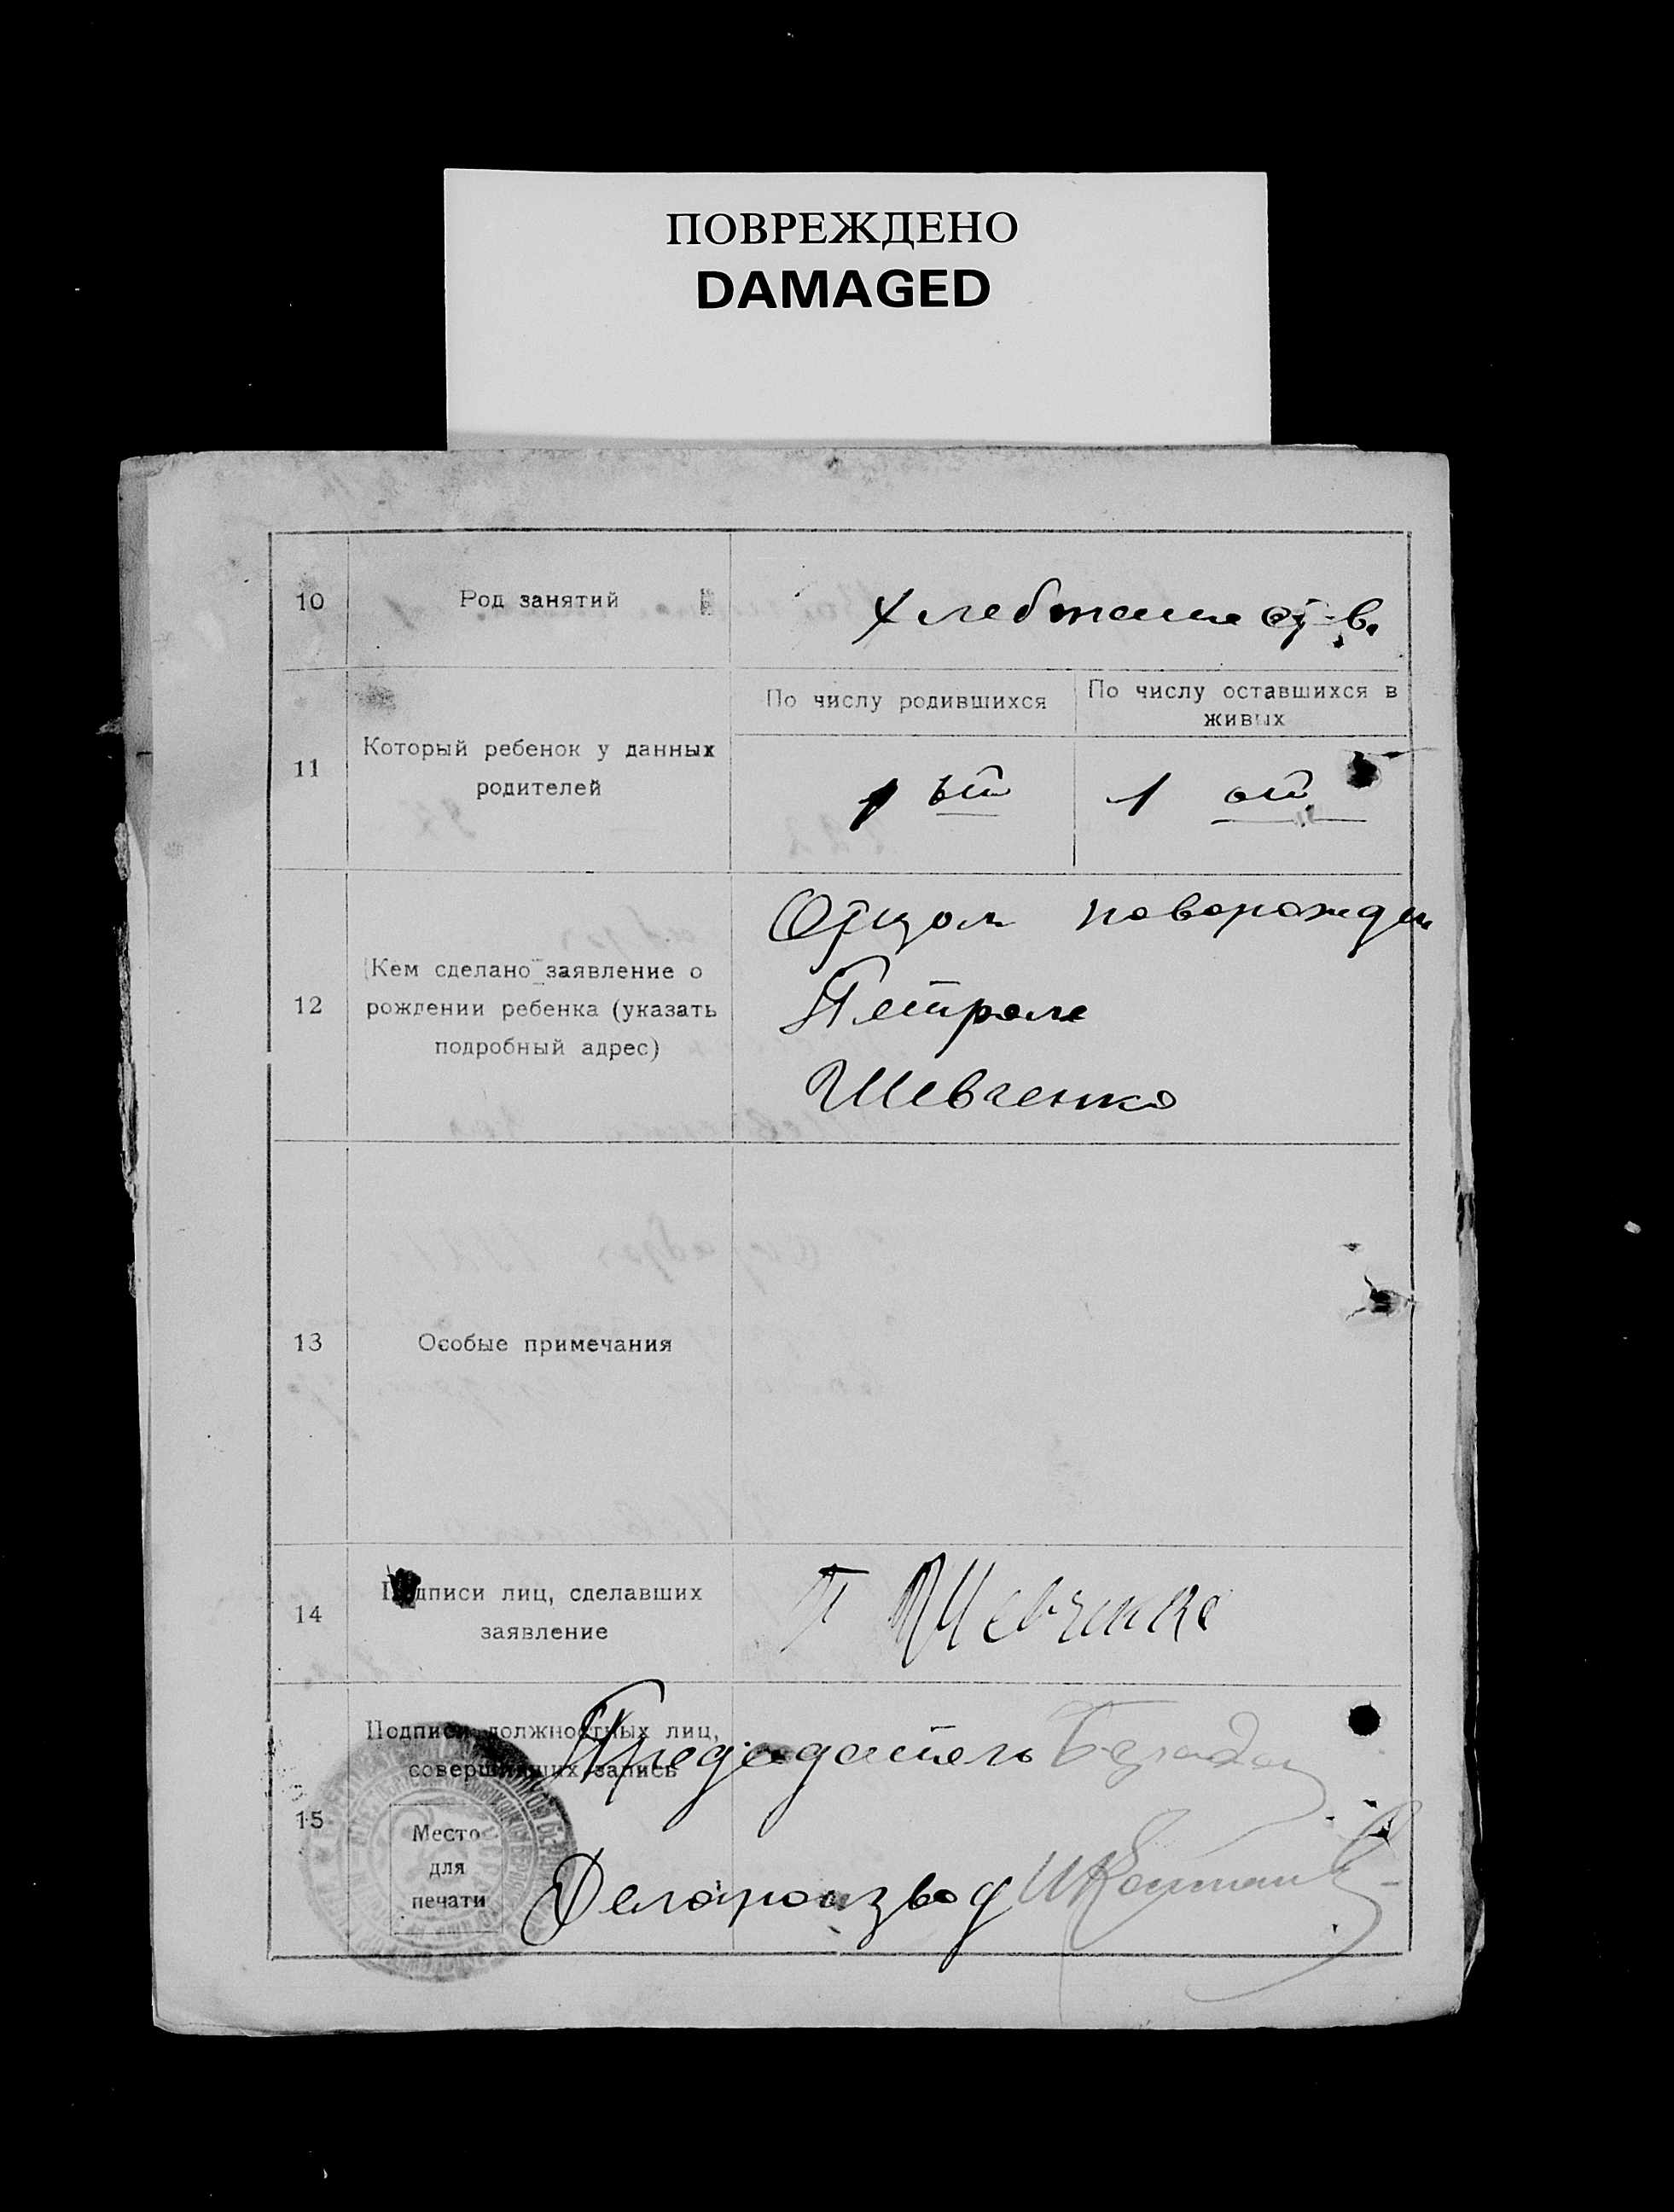 ПОВРЕЖДЕНО
DAMAGED
10 Род занятий
11 Который ребенок у данных
родителей
По числу родившихся
По числу оставшихся в
живых
1 ый
1 ый
12 Кем сделано заявление о
рождении ребенка (указать
подробный адрес)
Отцом новорожден
Петром
Шевченко
13 Особые примечания
14 Подписи лиц, сделавших
заявление
П Шевченко
15 Подписи должностных лиц,
совершивших запись
Место
для
печати
Председатель
Делопроизвод